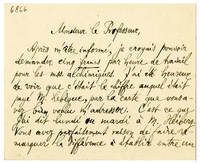 6866
Monsieur le Professeur,
Après m'être informé, je croyais pouvoir
demander cinq francs par heure de travail
pour les mss. alchimiques. J'ai été heureux
de voir que c'était le chiffre auquel était
payé M. Lebègue par la carte que vous avez
bien voulu m'adresser. C'est ce que
j'ai dit lundi ou mardi à M. Heiberg.
Vous avez parfaitement raison de faire re-
marquer la différence à établir entre un